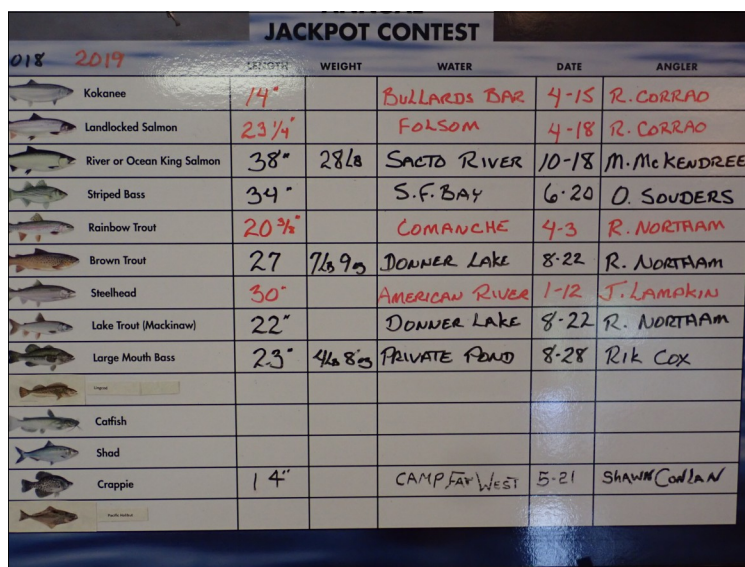 JACKPOT CONTEST
018 2019
LENGTH WEIGHT WATER DATE ANGLER
Kokanee 14" BULLARDS BAR 4-15 R. CORRAO
Landlocked Salmon 23 1/4" FOLSOM 4-18 R. CORRAO
River or Ocean King Salmon 38" 28 lb SACTO RIVER 10-18 M. McKENDREE
Striped Bass 34" S.F. BAY 6-20 O. SOUDERS
Rainbow Trout 20 3/8" COMANCHE 4-3 R. NORTHAM
Brown Trout 27 7 lb 9 oz DONNER LAKE 8-22 R. NORTHAM
Steelhead 30" AMERICAN RIVER 1-12 J. LAMPKIN
Lake Trout (Mackinaw) 22" DONNER LAKE 8-22 R. NORTHAM
Large Mouth Bass 23" 4 lb 8 oz PRIVATE POND 8-28 RIK COX
Lingcod
Catfish
Shad
Crappie 14" CAMP FAR WEST 5-21 SHAWN CONLAN
Pacific Halibut